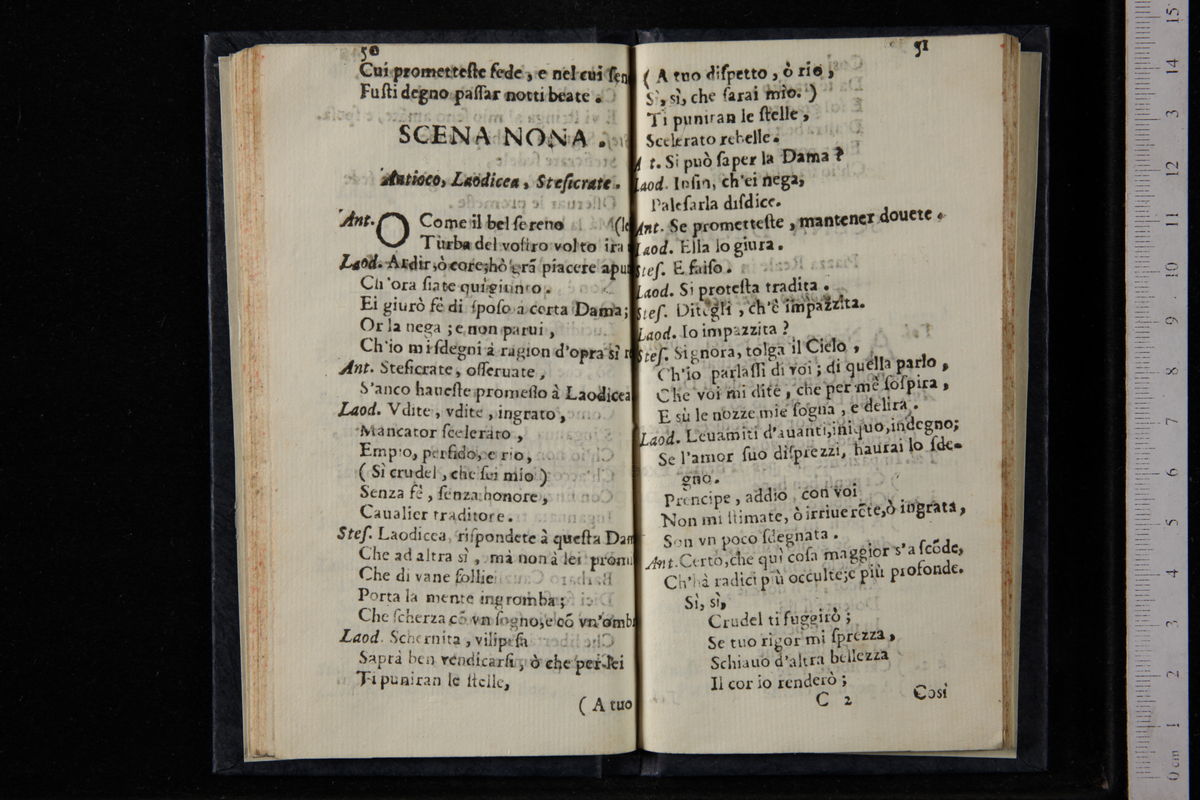 50
Cui prometteſte fede, e nel cui ſen
Fuſti degno paſſar notti beate.
SCENA NONA.
Antioco, Laodicea, Steſicrate.
Ant. O Come il bel ſereno (le
Turba del voſtro volto ira
Laod. Ardir, ò core; hò grã piacere apun
Ch'ora ſiate quì giunto.
Ei giurò fè di ſpoſo a certa Dama;
Or la nega; e non parui,
Ch'io mi ſdegni à ragion d'opra sì
Ant. Steſicrate, oſſeruate,
S'anco haueſte promeſſo à Laodicea
Laod. Vdite, vdite, ingrato,
Mancator ſcelerato,
Empio, perfido, e rio,
(Sì crudel, che ſei mio)
Senza fè, ſenza honore,
Caualier traditore.
Steſ. Laodicea, riſpondete à queſta Dam
Che ad altra sì, mà non à lei promi
Che di vane follie
Porta la mente ingromba;
Che ſcherza cõ vn ſogno, e cõ vn'ombr
Laod. Schernita, vilipeſa
Saprà ben vendicarſi, ò che per lei
Ti puniran le ſtelle,
(A tuo
51
(A tuo diſpetto, ò rio,
Sì, sì, che ſarai mio.)
Ti puniran le ſtelle,
Scelerato rebelle.
A t. Si può ſaper la Dama?
Laod. Inſin, ch'ei nega,
Paleſarla diſdice.
Ant. Se prometteſte, mantener douete.
Laod. Ella lo giura.
Steſ. E falſo.
Laod. Si proteſta tradita.
Steſ. Ditegli, ch'è impazzita.
Laod. Io impazzita?
Steſ. Signora, tolga il Cielo,
Ch'io parlaſſi di voi; di quella parlo,
Che voi mi dite, che per mè ſoſpira,
E sù le nozze mie ſogna, e delira.
Laod. Leuamiti d'auanti, iniquo, indegno;
Se l'amor ſuo diſprezzi, haurai lo ſde-
gno.
Prencipe, addio, con voi
Non mi ſtimate, ò irriuerẽte, ò ingrata,
Son vn poco ſdegnata.
Ant. Certo, che quì coſa maggior s'aſcõde,
Ch'hà radici più occulte; e più profonde.
Sì, sì,
Crudel ti fuggirò;
Se tuo rigor mi ſprezza,
Schiauo d'altra bellezza
Il cor io renderò;
C 2
Così
15
14
13
12
11
10
9
8
7
6
5
4
3
2
1
0 cm